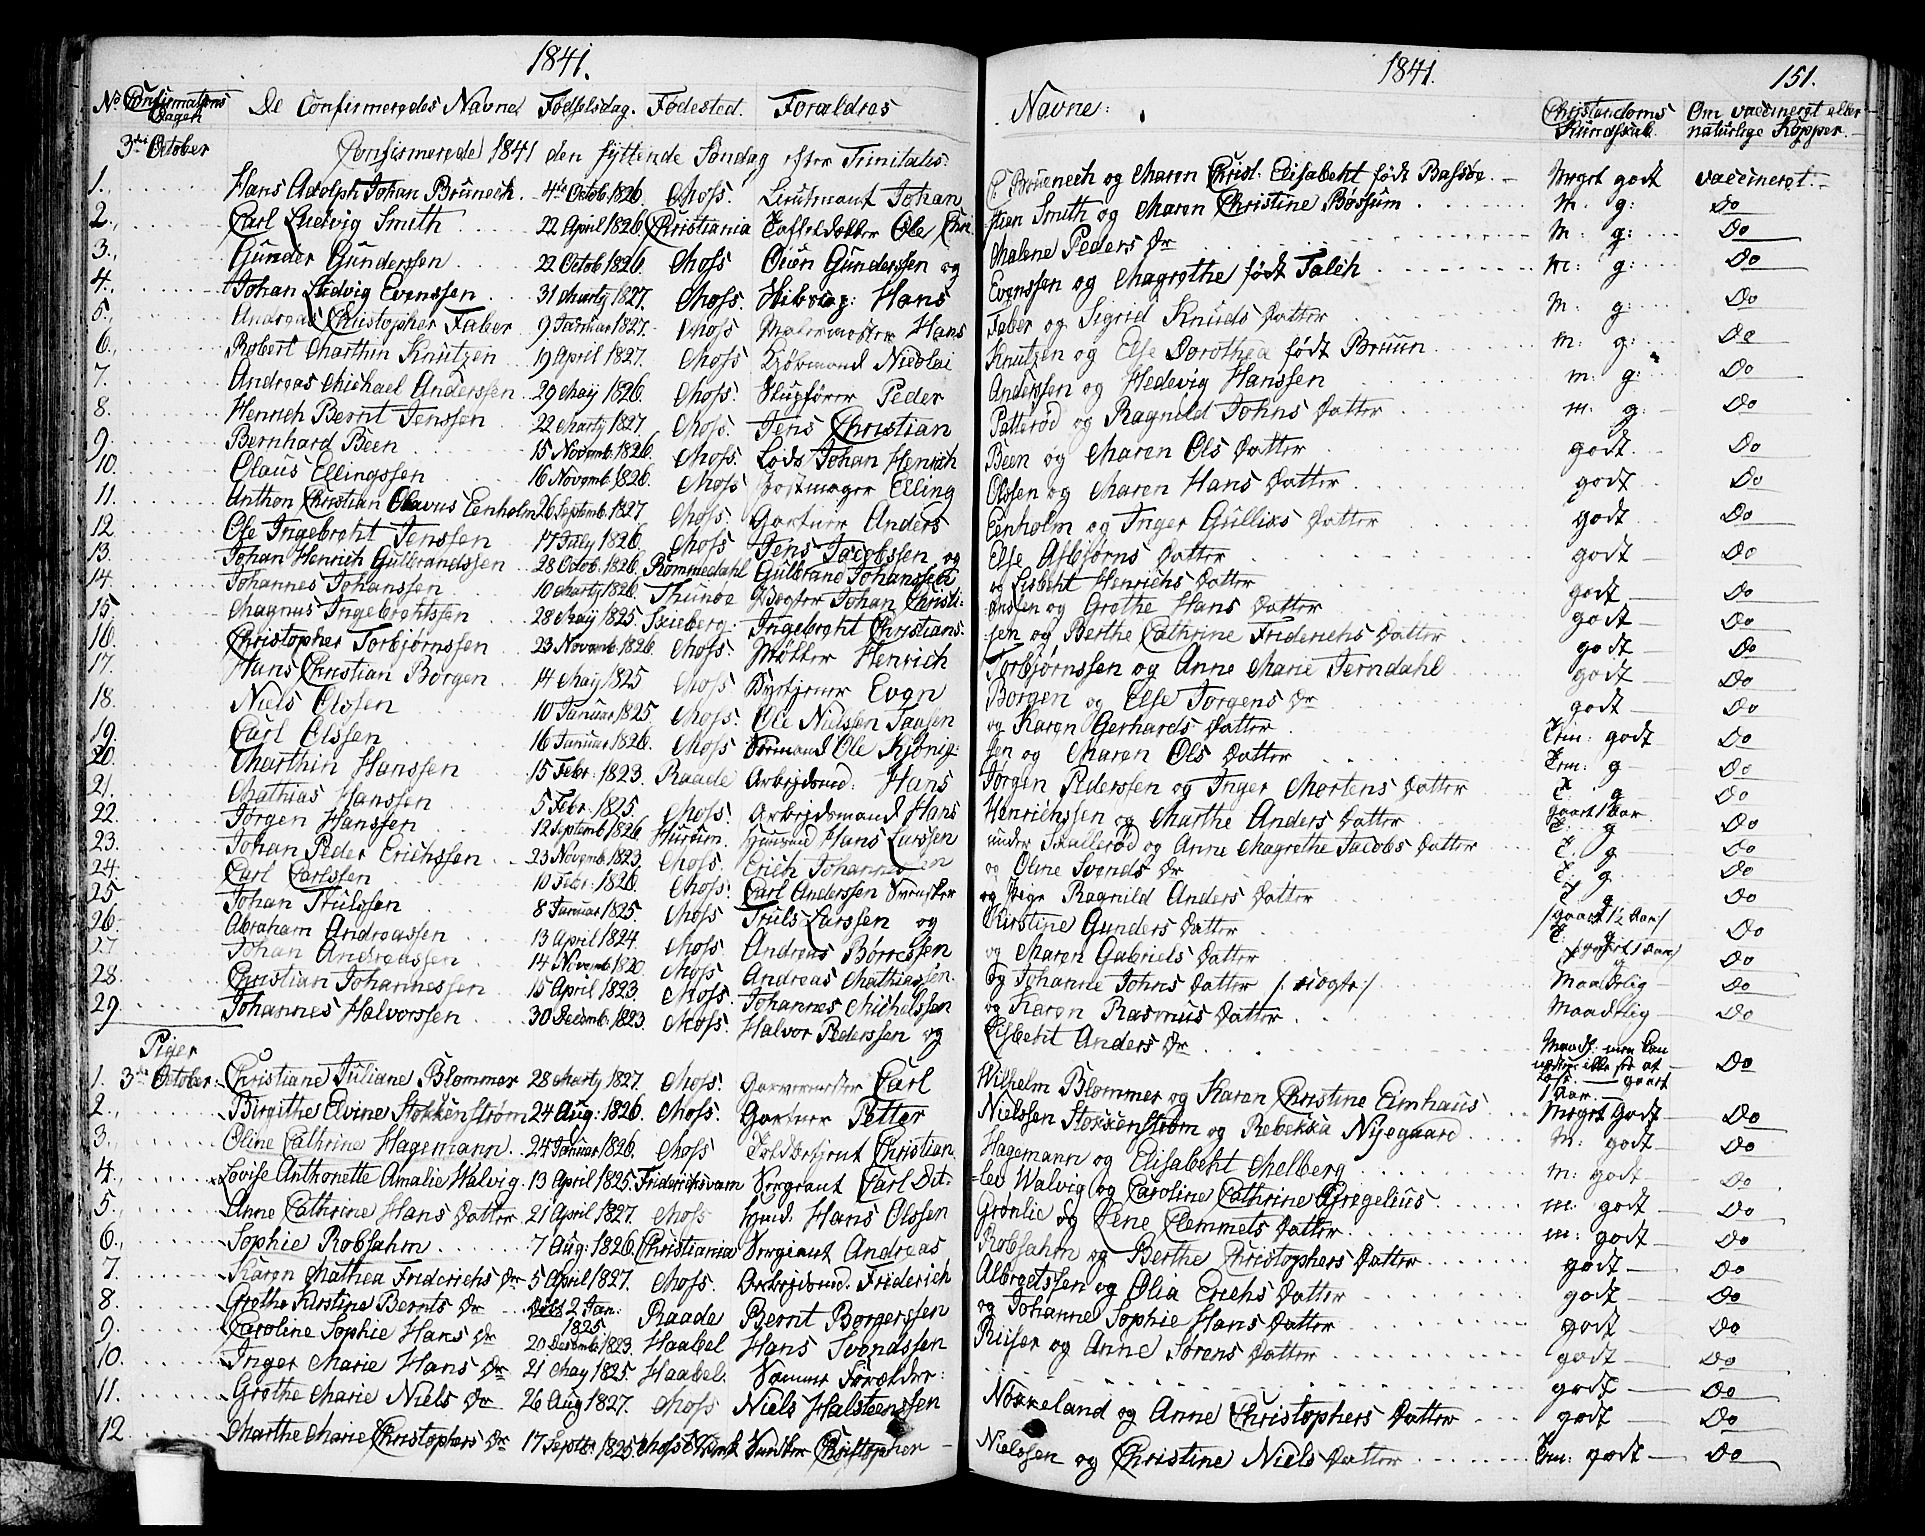 1841.
1841.
151.
No Confirmations Dagen De Confirmeredes Navne Fødselsdag. Fødested. Forældres Navne: Christendoms Kundskab. Om vaccineret eller naturlige Kopper.
3die October Confirmerede 1841 den syttende Søndag efter Trinitatis.
1. Hans Adolph Johan Brunech. 4de Octob. 1826. Moss. Lieutnant Johan C. Brunech og Maren Christ. Elisabeht født Bassøe. Meget godt vaccineret.
2. Carl Ludvig Smith 22 April 1826. Christiania Ole Chri- stien Smith og Maren Christine Børsum M: g: Do
3. Gunder Gunderssen 22 Octob 1826. Moss Øien Gunderssen og Malene Peders Dr M: g: Do
4. Johan Ludvig Evenssen 31 Marty 1827. Moss. Hans Evenssen og Magrethe født Taleh M: g: Do
5. Andreas Christopher Faber 9 Januar 1827. Moss Malermester Hans Faber og Sigrid Knuds Datter M: g: Do
6. Robert Marthin Knutzen 19 April 1827. Moss Kjøbmand Nicolai Knutzen og Else Dorothea født Bruun m: g: Do
7. Andreas Michael Anderssen 29 May 1826. Moss. Skipfører Peder Anderssen og Hedevig Hanssen m: g: Do
8. Henrich Bernt Jenssen 22 Marty 1827. Moss. Jens Christian Patterød og Ragnild Johns Datter m: g: Do
9. Bernhard Been 15 Novemb. 1826. Moss. Lods Johan Henrich Been og Maren Ols Datter godt Do
10. Claus Ellingssen 16 Novemb 1826. Moss Elling Olssen og Maren Hans Datter godt Do
11. Anthon Christian Olavus Eenholm 26 Septemb. 1827. Moss. Gartner Anders Eenholm og Inger Gulliks Datter godt Do
12. Ole Ingebreht Jenssen 17 July 1826. Moss Jens Jacobssen og Else Asbjørns Datter godt Do
13. Johan Henrich Gulbrandssen 28 Octob. 1826. Rommedahl Gulbrand Johanssen og Lisbeht Henrichs Datter godt Do
14. Johannes Johanssen 10 Marty 1826. Thunøe Johan Christi- anssen og Grethe Hans Datter godt Do
15. Magnus Ingebrehtssen 28 May 1825. Ingebreht Christians- sen og Berthe Cathrine Friderichs Datter godt Do
16. Christopher Torbjørnssen 23 Novemb. 1826. Moss. Møller Henrich Torbjørnssen og Anne Marie Jerndahl godt Do
17. Hans Christian Borgen 14 May 1825 Moss Even Borgen og Else Jørgens Dr godt Do
18. Niels Olssen 10 Januar 1825. Moss. Ole Nielssen og Karen Gerhards Datter godt Do
19. Carl Olssen 16 Januar 1826. Moss Ole sen og Maren Ols Datter Tem: godt Do
20. Marthin Hanssen 15 Febr: 1823. Raade Arbejdsmd: Hans Jørgen Pederssen og Inger Mortens Datter Tem: g Do
21. Mathias Hanssen 5 Febr: 1825. Moss Arbejdsmand Hans Henrichssen og Marthe Anders Datter T. g gaaet 1 Aar. Do
22. Jørgen Hanssen 12 Septemb 1826. Hurum. Huusmd Hans Larssen under Smallerød og Anne Magrethe Jacobs Datter T. g Do
23. Johan Peder Erichssen 23 Novemb. 1823. Moss. Erich Johannessen og Oline Svends Dr T. g Do
24. Carl Carlssen 10 Febr: 1826. Moss. Carl Anderssen Svensker og Pige Ragnild Anders Datter T. g Do
25. Johan Trulssen 8 Januar 1825. Moss Truls Larssen og Kirstine Gunders Datter T g /:gaaet 1/2 Aar:/ Do
26. Abraham Andreassen 13 April 1824. Moss Andreas Børressen og Maren Gabriels Datter T. g /:gaaet 1 Aar:/ Do
27. Johan Andreassen 14 Novemb 1820. Moss Andreas Mathiassen og Johanne Johns Datter Maadelig Do
28. Christian Johannessen 15 April 1823. Moss. Johannes Michelssen og Karen Rasmus Datter Maadelig Do
29. Johannes Halvorssen 30 Decemb. 1823. Moss. Halvor Pederssen og Lisbeht Anders Dr Maadl: men kan ikke at gaaet 1 Aar. Do
Piger
1. 3die October: Christiane Juliane Blommer 28 Marty 1827. Moss. Garvermester Carl Wilhelm Blommer og Karen Christine Eimhaus Meget Godt Do
2. Birgithe Elvine Stokkenstrøm 24 Aug: 1826. Moss. Gartner Petter Nielssen Stokkenstrøm og Rebekka Nyegaard M: godt Do
3. Oline Cathrine Hagemann 24 Januar 1826. Moss Toldbetjent Christian Hagemann og Elisabeht Melberg m: godt Do
4. Lovise Anthonette Amalie Walvig 13 April 1825. Friderichsværn Sergeant Carl Dit- lev Walvig og Caroline Cathrine Gregelius m: godt Do
5. Anne Cathrine Hans Datter 21 April 1827. Moss Hans Olssen Grønlie og Lene Clemmets Datter m: godt Do
6. Sophie Robsahm 7 Aug: 1826. Christiania Sergeant Andreas Robsahm og Berthe Christophers Datter godt Do
7. Karen Mathea Friderichs Dr 5 April 1827. Moss. Arbejdsmd. Friderich Albregtssen og Olia Erichs Datter godt Do
8. Grethe Kirstine Bernts Dr 2 Jan: 1825 Raade Bernt Borgerssen og Johanne Sophie Hans Datter godt Do
9. Caroline Sophie Hans Dr 20 Decemb. 1823. Haabel Hans Svendssen Riiser og Anne Sørens Datter godt Do
10. Inger Marie Hans Dr 21 May 1825. Haabel. Samme Forældre: godt Do
11. Grethe Marie Niels Dr 26 Aug 1827. Moss Niels Halsteenssen Nokkeland og Anne Christophers Datter godt Do
12. Marthe Marie Christophers Dr 17 Septbr: 1825. Moss Værk Christopher Nielssen og Christine Niels Datter Tem: godt Do